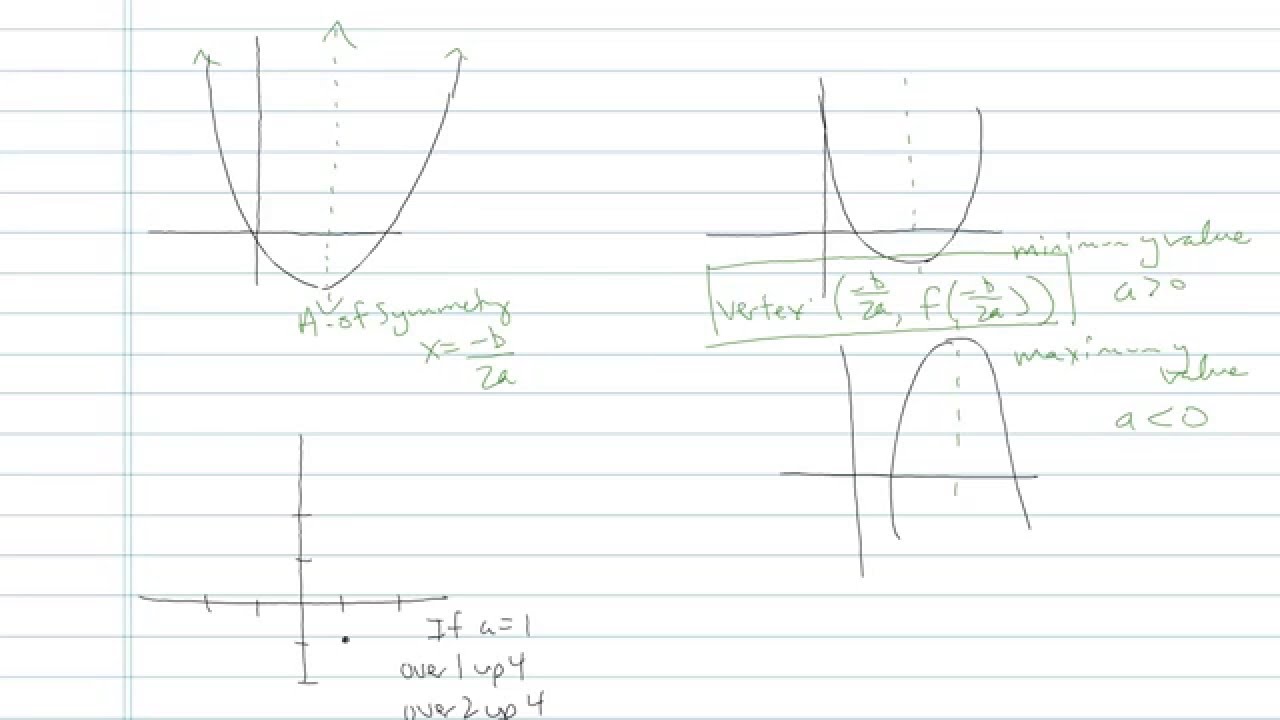 A. of Symmetry
x = -b/2a
minimum y value
a > 0
Vertex: (-b/2a, f(-b/2a))
maximum y
value
a < 0
If a = 1
over 1 up 4
over 2 up 4